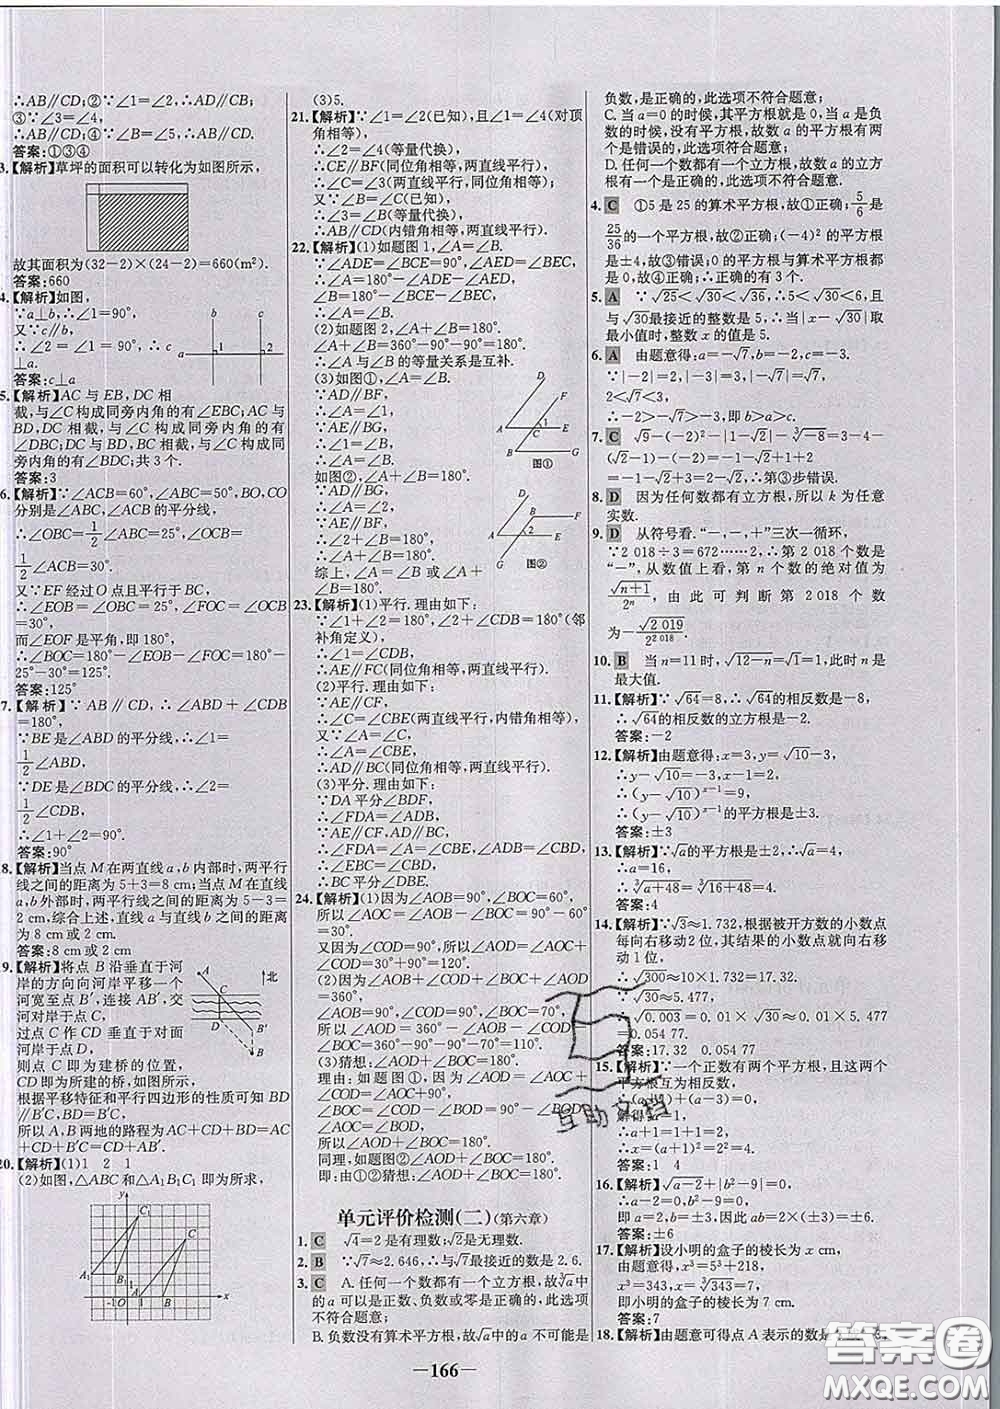 ∴AB∥CD;②∵∠1=∠2,∴AD∥CB;
③∵∠3=∠4,
∴AB∥CD;④∵∠B=∠5,∴AB∥CD.
答案:①③④
3.【解析】草坪的面积可以转化为如图所示,
故其面积为(32-2)×(24-2)=660(m²).
答案:660
4.【解析】如图,
∵a⊥b,∴∠1=90°,
又∵c∥b,
∴∠2=∠1=90°,∴c
⊥a.
答案:c⊥a
b c
a 1 2
5.【解析】AC与EB,DC相
截,与∠C构成同旁内角的有∠EBC;AC与
BD,DC相截,与∠C构成同旁内角的有
∠DBC;DC与BD、BC相截,与∠C构成同
旁内角的有∠BDC;共3个.
答案:3
6.【解析】∵∠ACB=60°,∠ABC=50°,BO,CO
分别是∠ABC,∠ACB的平分线,
∴∠OBC=1/2∠ABC=25°,∠OCB=
1/2∠ACB=30°.
又∵EF经过O点且平行于BC,
∴∠EOB=∠OBC=25°,∠FOC=∠OCB
=30°,
而∠EOF是平角,即180°,
∴∠BOC=180°-∠EOB-∠FOC=180°-
25°-30°=125°.
答案:125°
7.【解析】∵AB∥CD,∴∠ABD+∠CDB
=180°,
∵BE是∠ABD的平分线,∴∠1=
1/2∠ABD,
∵DE是∠CDB的平分线,∴∠2=
1/2∠CDB,
∴∠1+∠2=90°.
答案:90°
18.【解析】当点M在两直线a,b内部时,两平行
线之间的距离为5+3=8 cm;当点M在直线
a,b外部时,两平行线之间的距离为5-3=
2 cm.综合上述,直线a与直线b之间的距离
为8 cm或2 cm.
答案:8 cm或2 cm
19.【解析】将点B沿垂直于河
岸的方向向河岸平移一个
河宽至点B′,连接AB′,交
河对岸于点C,
过点C作CD垂直于对面
河岸于点D,
则点C即为建桥的位置,
CD即为所建的桥,如图.
根据平移特征和平行四边形的性质可知BD
∥B′C,BD=B′C,
所以A,B两地的路程为AC+CD+BD=AC
+CD+B′C=CD+AB′.
A 北
C
D B′
B
20.【解析】(1)1 2 1
(2)如图,△ABC和△A₁B₁C₁即为所求,
y
C₁ C
A₁ B₁ 1
-1 O A 1 B x
(3)5.
21.【解析】∵∠1=∠2(已知),且∠1=∠4(对顶
角相等),
∴∠2=∠4(等量代换),
∴CE∥BF(同位角相等,两直线平行),
∴∠C=∠3(两直线平行,同位角相等),
又∵∠B=∠C(已知),
∴∠3=∠B(等量代换),
∴AB∥CD(内错角相等,两直线平行).
22.【解析】(1)如题图1,∠A=∠B.
∵∠ADE=∠BCE=90°,∠AED=∠BEC,
∴∠A=180°-∠ADE-∠AED,
∠B=180°-∠BCE-∠BEC,
∴∠A=∠B.
(2)如题图2,∠A+∠B=180°.
∠A+∠B=360°-90°-90°=180°.
∴∠A与∠B的等量关系是互补.
(3)如图①,∠A=∠B.
∵AD∥BF,
∴∠A=∠1.
∵AE∥BG,
∴∠1=∠B.
∴∠A=∠B.
如图②,∠A+∠B=180°.
∵AD∥BG,
∴∠A=∠2.
∵AE∥BF,
∴∠2+∠B=180°.
∴∠A+∠B=180°.
综上,∠A=∠B或∠A+
∠B=180°.
D F
A C 1 E
B G
图①
D
B F
A 2 E
G 图②
23.【解析】(1)平行.理由如下:
∵∠1+∠2=180°,∠2+∠CDB=180°(邻
补角定义),
∴∠1=∠CDB,
∴AE∥FC(同位角相等,两直线平行).
(2)平行.理由如下:
∵AE∥CF,
∴∠C=∠CBE(两直线平行,内错角相等),
又∵∠A=∠C,
∴∠A=∠CBE,
∴AD∥BC(同位角相等,两直线平行).
(3)平分.理由如下:
∵DA平分∠BDF,
∴∠FDA=∠ADB,
∵AE∥CF,AD∥BC,
∴∠FDA=∠A=∠CBE,∠ADB=∠CBD,
∴∠EBC=∠CBD,
∴BC平分∠DBE.
24.【解析】(1)因为∠AOB=90°,∠BOC=60°,
所以∠AOC=∠AOB-∠BOC=90°-60°
=30°.
又因为∠COD=90°,所以∠AOD=∠AOC+
∠COD=30°+90°=120°.
(2)因为∠AOB+∠COD+∠BOC+∠AOD=
360°,
∠AOB=90°,∠COD=90°,∠BOC=70°,
所以∠AOD=360°-∠AOB-∠COD-
∠BOC=360°-90°-90°-70°=110°.
(3)猜想:∠AOD+∠BOC=180°.
理由:如图①,因为∠AOD=∠AOC+
∠COD=∠AOC+90°,∠BOC=∠COD-
∠BOD=90°-∠BOD,∠AOC=∠BOD,所以
∠AOD+∠BOC=180°.
同理,如图②∠AOD+∠BOC=180°.
即:由①②猜想:∠AOD+∠BOC=180°.
单元评价检测(二)(第六章)
1. C √4=2是有理数;√2是无理数.
2. B ∵√7≈2.646,∴与√7最接近的数是2.6.
3. C A.任何一个数都有一个立方根,故∛a中
的a可以是正数、负数或零是正确的,此选项
不符合题意;
B.负数没有算术平方根,故√a中的a不可能是
负数,是正确的,此选项不符合题意;
C.当a为负数的时候,其平方根就是0,当a是负
数的时候,没有平方根,故数a的平方根有两
个是错误的,此选项符合题意;
D.任何一个数都有一个立方根,故数a的立方
根有一个是正确的,此选项不符合题意.
4. C ①5是25的算术平方根,故①正确;5/6是
25/36的一个平方根,故②正确;(-4)²的平方根
是±4,故③错误;0的平方根与算术平方根都
是0,故④正确;∴正确的有3个.
5. A ∵√25<√30<√36,∴5<√30<6,且
与√30最接近的整数是5,∴当|x-√30|取
最小值时,整数x的值是5.
6. A 由题意得:a=-√7,b=-2,c=-3.
∵|-2|=2,|-√7|=√7,|-3|=3,
2<√7<3,
∴-2>-√7>-3,即b>a>c.
7. C √9-(-2)²-|1-√2|-∛-8=3-4-
(√2-1)-(-2)=-1-√2+1+2
=-1-√2+3=2-√2,所以,第③步错误.
8. D 因为任何数都有立方根,所以k为任意
实数.
9. D 从符号看,“-,-,+”三次一循环,
∵2 018÷3=672……2,∴第2 018个数是
“-”,从数值上看,第n个数的绝对值为
√(n+1)/2ⁿ,由此可判断第2 018个数
为-√2 019/2^2 018.
10. B 当n=11时,√(12-n)=√1=1,此时n是
最大值.
11.【解析】∵√64=8,∴√64的相反数是-8,
∴√64的相反数的立方根是-2.
答案:-2
12.【解析】由题意得:x=3,y=√10-3,
∴y-√10=-3,x-1=2,
∴(y-√10)^(x-1)=9,
∴(y-√10)^(x-1)的平方根是±3.
答案:±3
13.【解析】∵√a的平方根是±2,∴√a=4,
∴a=16,
∴∛(a+48)=∛(16+48)=4.
答案:4
14.【解析】∵√3≈1.732,根据被开方数的小数点
每向右移动2位,其结果的小数点就向右移
动1位,
∴√300≈10×1.732=17.32.
∵√30≈5.477,
∴√0.003=0.01×√30≈0.01×5.477
=0.054 77.
答案:17.32 0.054 77
15.【解析】∵一个正数有两个平方根,且这两个
平方根互为相反数,
∴a+1+1=2,
答案:1 4
16.【解析】∵√(a-2)+|b²-9|=0,
∴a-2=0,b²-9=0,
即a=2,b=±3,因此ab=2×(±3)=±6.
答案:±6
17.【解析】设小明的盒子的棱长为x cm,
由题意得,x³=5³+218,
x³=343,x=∛343=7,
即小明的盒子的棱长为7 cm.
答案:7
18.【解析】由题意可得点A表示的数是
—166—
互助文档
答案圈
MXQE.COM